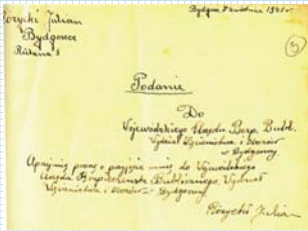 Bydgoszcz 8 kwietnia 1945 r.
Julian
Bydgoszcz
8
3
Podanie
Do
Wojewódzkiego Urzędu Bezp. Publ.
Wydział Więziennictwa i Obozów
w Bydgoszczy
Uprzejmie proszę o przyjęcie mnie do Wojewódzkiego
Urzędu Bezpieczeństwa Publicznego, Wydział
Więziennictwa i Obozów w Bydgoszczy
Julian